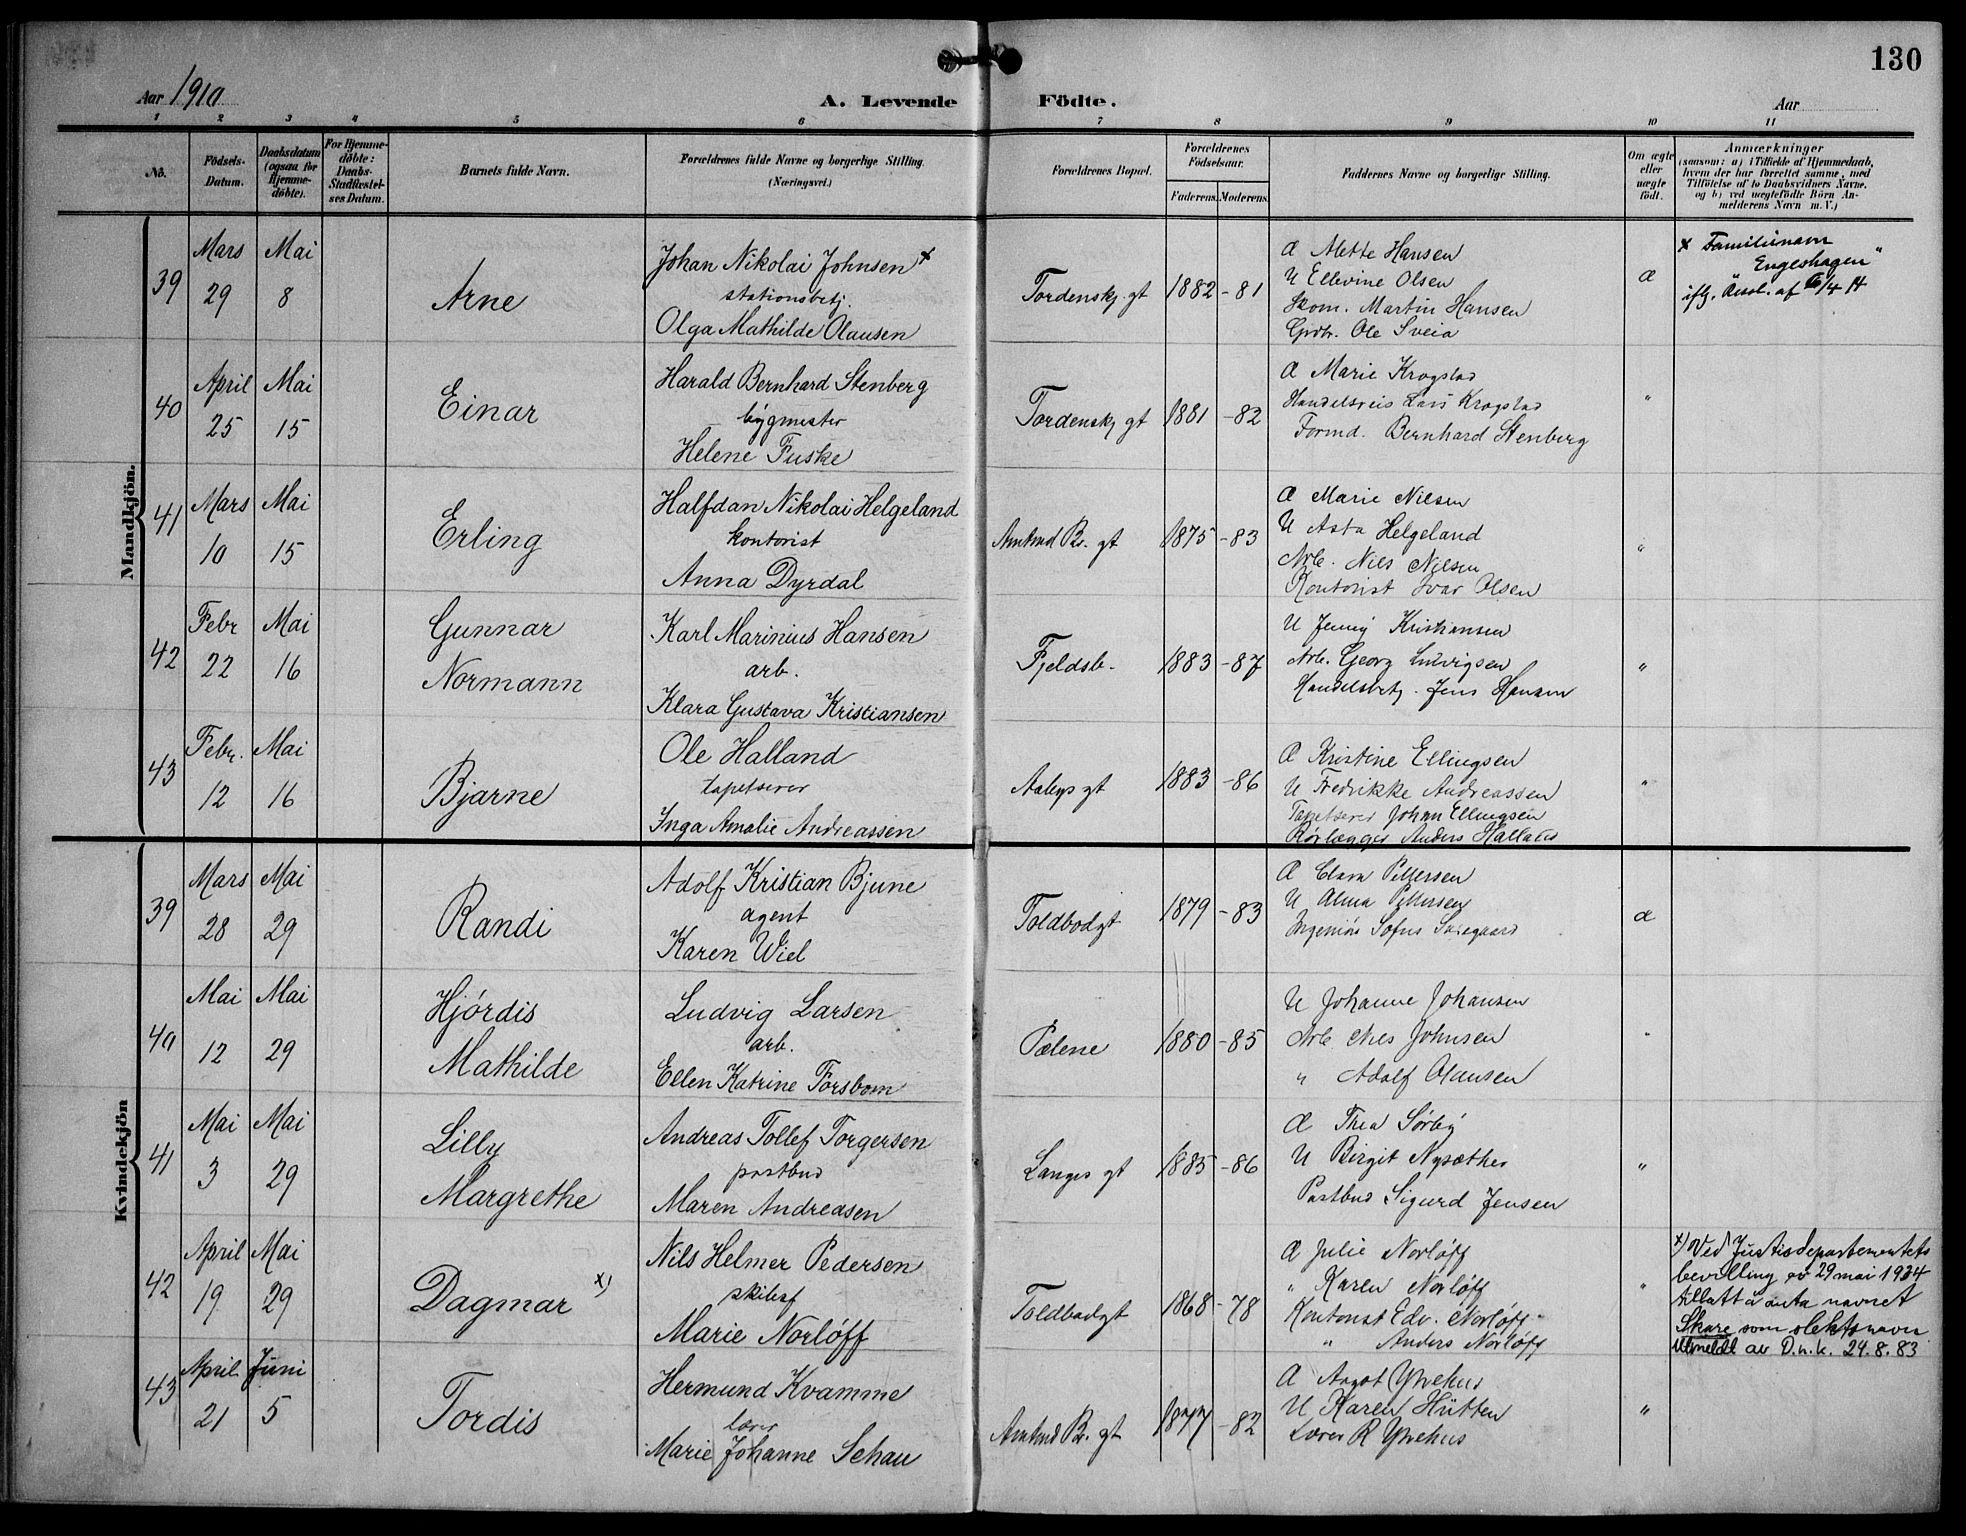 130
Aar 1910 A. Levende Födte. Aar
1 2 3 4 5 6 7 8 9 10 11
No.
Födsels-Datum.
Daabsdatum (ogsaa for Hjemme-döbte).
For Hjemme-döbte: Daabs-Stadfæstel-ses Datum.
Barnets fulde Navn.
Forældrenes fulde Navne og borgerlige Stilling.
(Næringsvei.)
Forældrenes Bopæl.
Forældrenes Födselsaar.
Faderens. Moderens.
Faddernes Navne og borgerlige Stilling.
Om ægte eller uægte födt.
Anmærkninger
(saasom: a) i Tilfælde af Hjemmedaab,
hvem der har forrettet samme, med
Tilföielse af to Daabsvidners Navne.
og b) ved uægtefödte Börn An-
melderens Navn m. V.)
Mandkjön.
39
Mars 29
Mai 8
Arne
Johan Nikolai Johnsen x
stationsbetj.
Olga Mathilde Olausen
Tordenskj. gt
1882 - 81
Æ Alette Hansen
U Ellevine Olsen
Skom. Martin Hansen
Grdbr. Ole Sveia
Æ
x Familienavn
"Engeshagen"
iflg. Resol. af 6/4 14
40
April 25
Mai 15
Einar
Harald Bernhard Stenberg
bygmester
Helene Fuske
Tordenskj gt
1881 - 82
Æ Marie Krogstad
Handelsreis Lars Krogstad
Formd. Bernhard Stenberg
"
41
Mars 10
Mai 15
Erling
Halfdan Nikolai Helgeland
kontorist
Anna Dyrdal
Amtmd Br. gt
1875 - 83
Æ Marie Nilsen
U Asta Helgeland
Arb. Nils Nilsen
Kontorist Ivar Olsen
"
42
Febr 22
Mai 16
Gunnar
Normann
Karl Marinius Hansen
arb.
Klara Gustava Kristiansen
Fjeldsb.
1883 - 87
U Jenny Kristiansen
Arb. Georg Ludvigsen
Handelsbetj. Jens Hansen
"
43
Febr. 12
Mai 16
Bjarne
Ole Halland
tapetserer
Inga Amalie Andreassen
Aabys gt
1883 - 86
Æ Kristine Ellingsen
U Fredrikke Andreassen
Tapetserer Johan Ellingsen
Rørlægger Anders Halland
"
Kvindekjön
39
Mars 28
Mai 29
Randi
Adolf Kristian Bjune
agent
Karen Wiel
Toldbodgt
1879 - 83
Æ Clara Pettersen
U Alma Pettersen
Ingeniör Sofus
Æ
40
Mai 12
Mai 29
Hjórdis
Mathilde
Ludvig Larsen
arb.
Ellen Katrine Forsbom
Pælene
1880 - 85
U Johanne Johansen
Arb Nils Johnsen
" Adolf Olausen
"
41
Mai 3
Mai 29
Lilly
Margrethe
Andreas Tollef Torgersen
postbud
Maren Andreasen
Langes gt
1885 - 86
Æ Thea Sørby
U Birgit Nysæther
Postbud Sigurd Jensen
"
42
April 19
Mai 29
Dagmar x)
Nils Helmer Pedersen
skibsf
Marie Norløff
Toldbodgt
1868 - 78
Æ Julie Norløff
" Karen Norløff
Kontorist Edv. Norløff
" Anders Norløff
"
x) Ved Justisdepartementets
bevilling av 29 mai 1934
tillatt å anta navnet
Skare som slektsnavn
Utmeldt av D.n.k. 24.8.83
43
April 21
Juni 5
Tordis
Hermund Kvamme
lærer
Marie Johanne Schau
Amtmd Br. gt
1877 - 82
Æ Aagot Ytrehus
U Karen Hütten
Lærer R Ytrehus
"